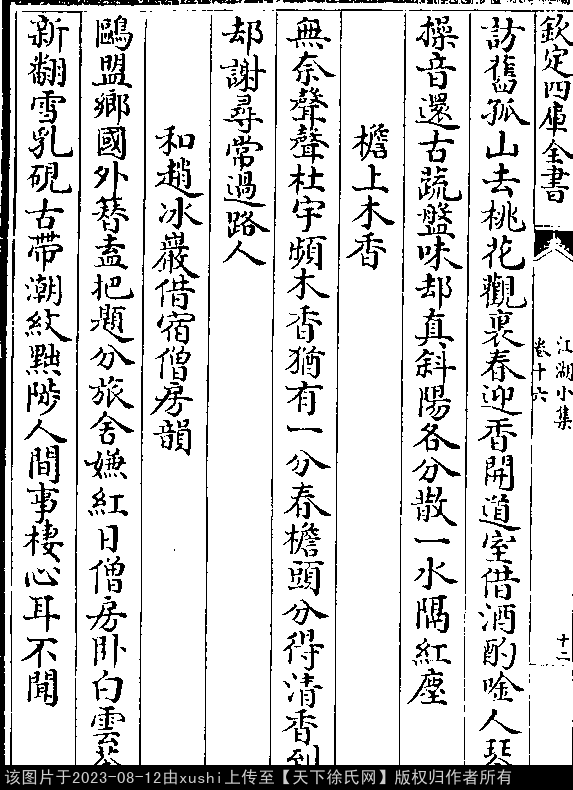 欽定四庫全書
江湖小集
卷十六
十二
訪舊孤山去桃花觀裏春迎香開道室借酒酌唫人琴
操音還古蔬盤味却真斜陽各分散一水隔紅塵
檐上木香
無奈聲聲杜宇頻木香猶有一分春檐頭分得清香到
却謝尋常過路人
和趙冰巖借宿僧房韻
鷗盟鄉國外簪盍把題分旅舍嫌紅日僧房卧白雲茶
新翻雪乳硯古帶潮紋點陟人間事棲心耳不聞
该图片于2023-08-12由xushi上传至【天下徐氏网】版权归作者所有